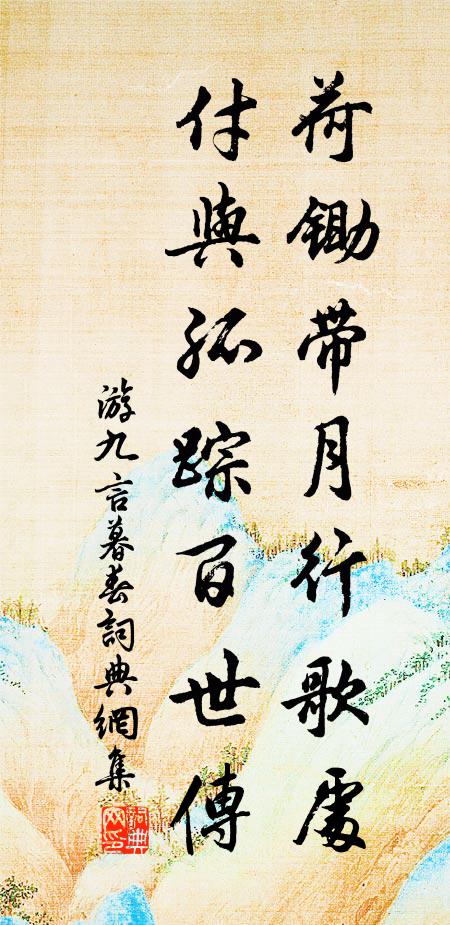 荷鋤带月行歌處
付與孤踪百世傳
游九言暮春詞典網集
詞典网印